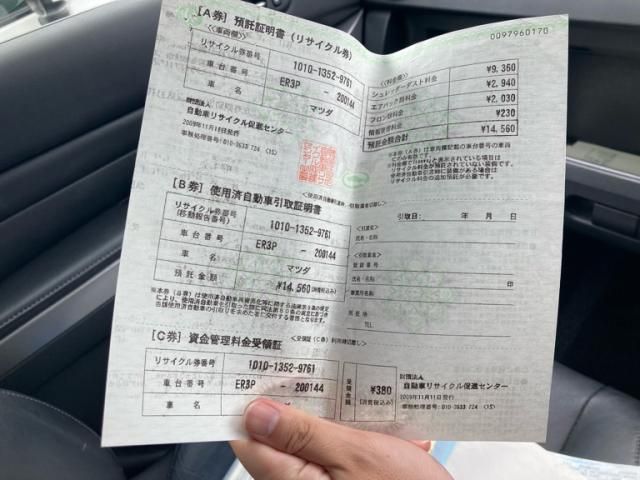 0097960170
[A券] 預託証明書 (リサイクル券)
<<車両欄>>
リサイクル券番号 1010-1352-9761
車台番号 ER3P - 200144
車名 マツダ
<<料金欄>>
シュレッダーダスト料金 ¥9,360
エアバッグ類料金 ¥2,940
フロン類料金 ¥2,030
情報管理料金 ¥230
預託金額合計 ¥14,560
財団法人
自動車リサイクル促進センター
2009年11月11日発行
事務処理番号:010-3633 724 (JS)
[B券] 使用済自動車引取証明書
リサイクル券番号
(移動報告番号) 1010-1352-9761
車台番号 ER3P - 200144
車名 マツダ
預託金額 ¥14,560 (消費税込み)
引取日: 年 月 日
氏名・名称
氏名・名称 印
事業所名称
所在地
TEL
[C券] 資金管理料金受領証
リサイクル券番号 1010-1352-9761
車台番号 ER3P - 200144
車名 マツダ
受領金額 ¥380
(消費税込み)
財団法人
自動車リサイクル促進センター
2009年11月11日発行
事務処理番号:010-3633 724 (JS)